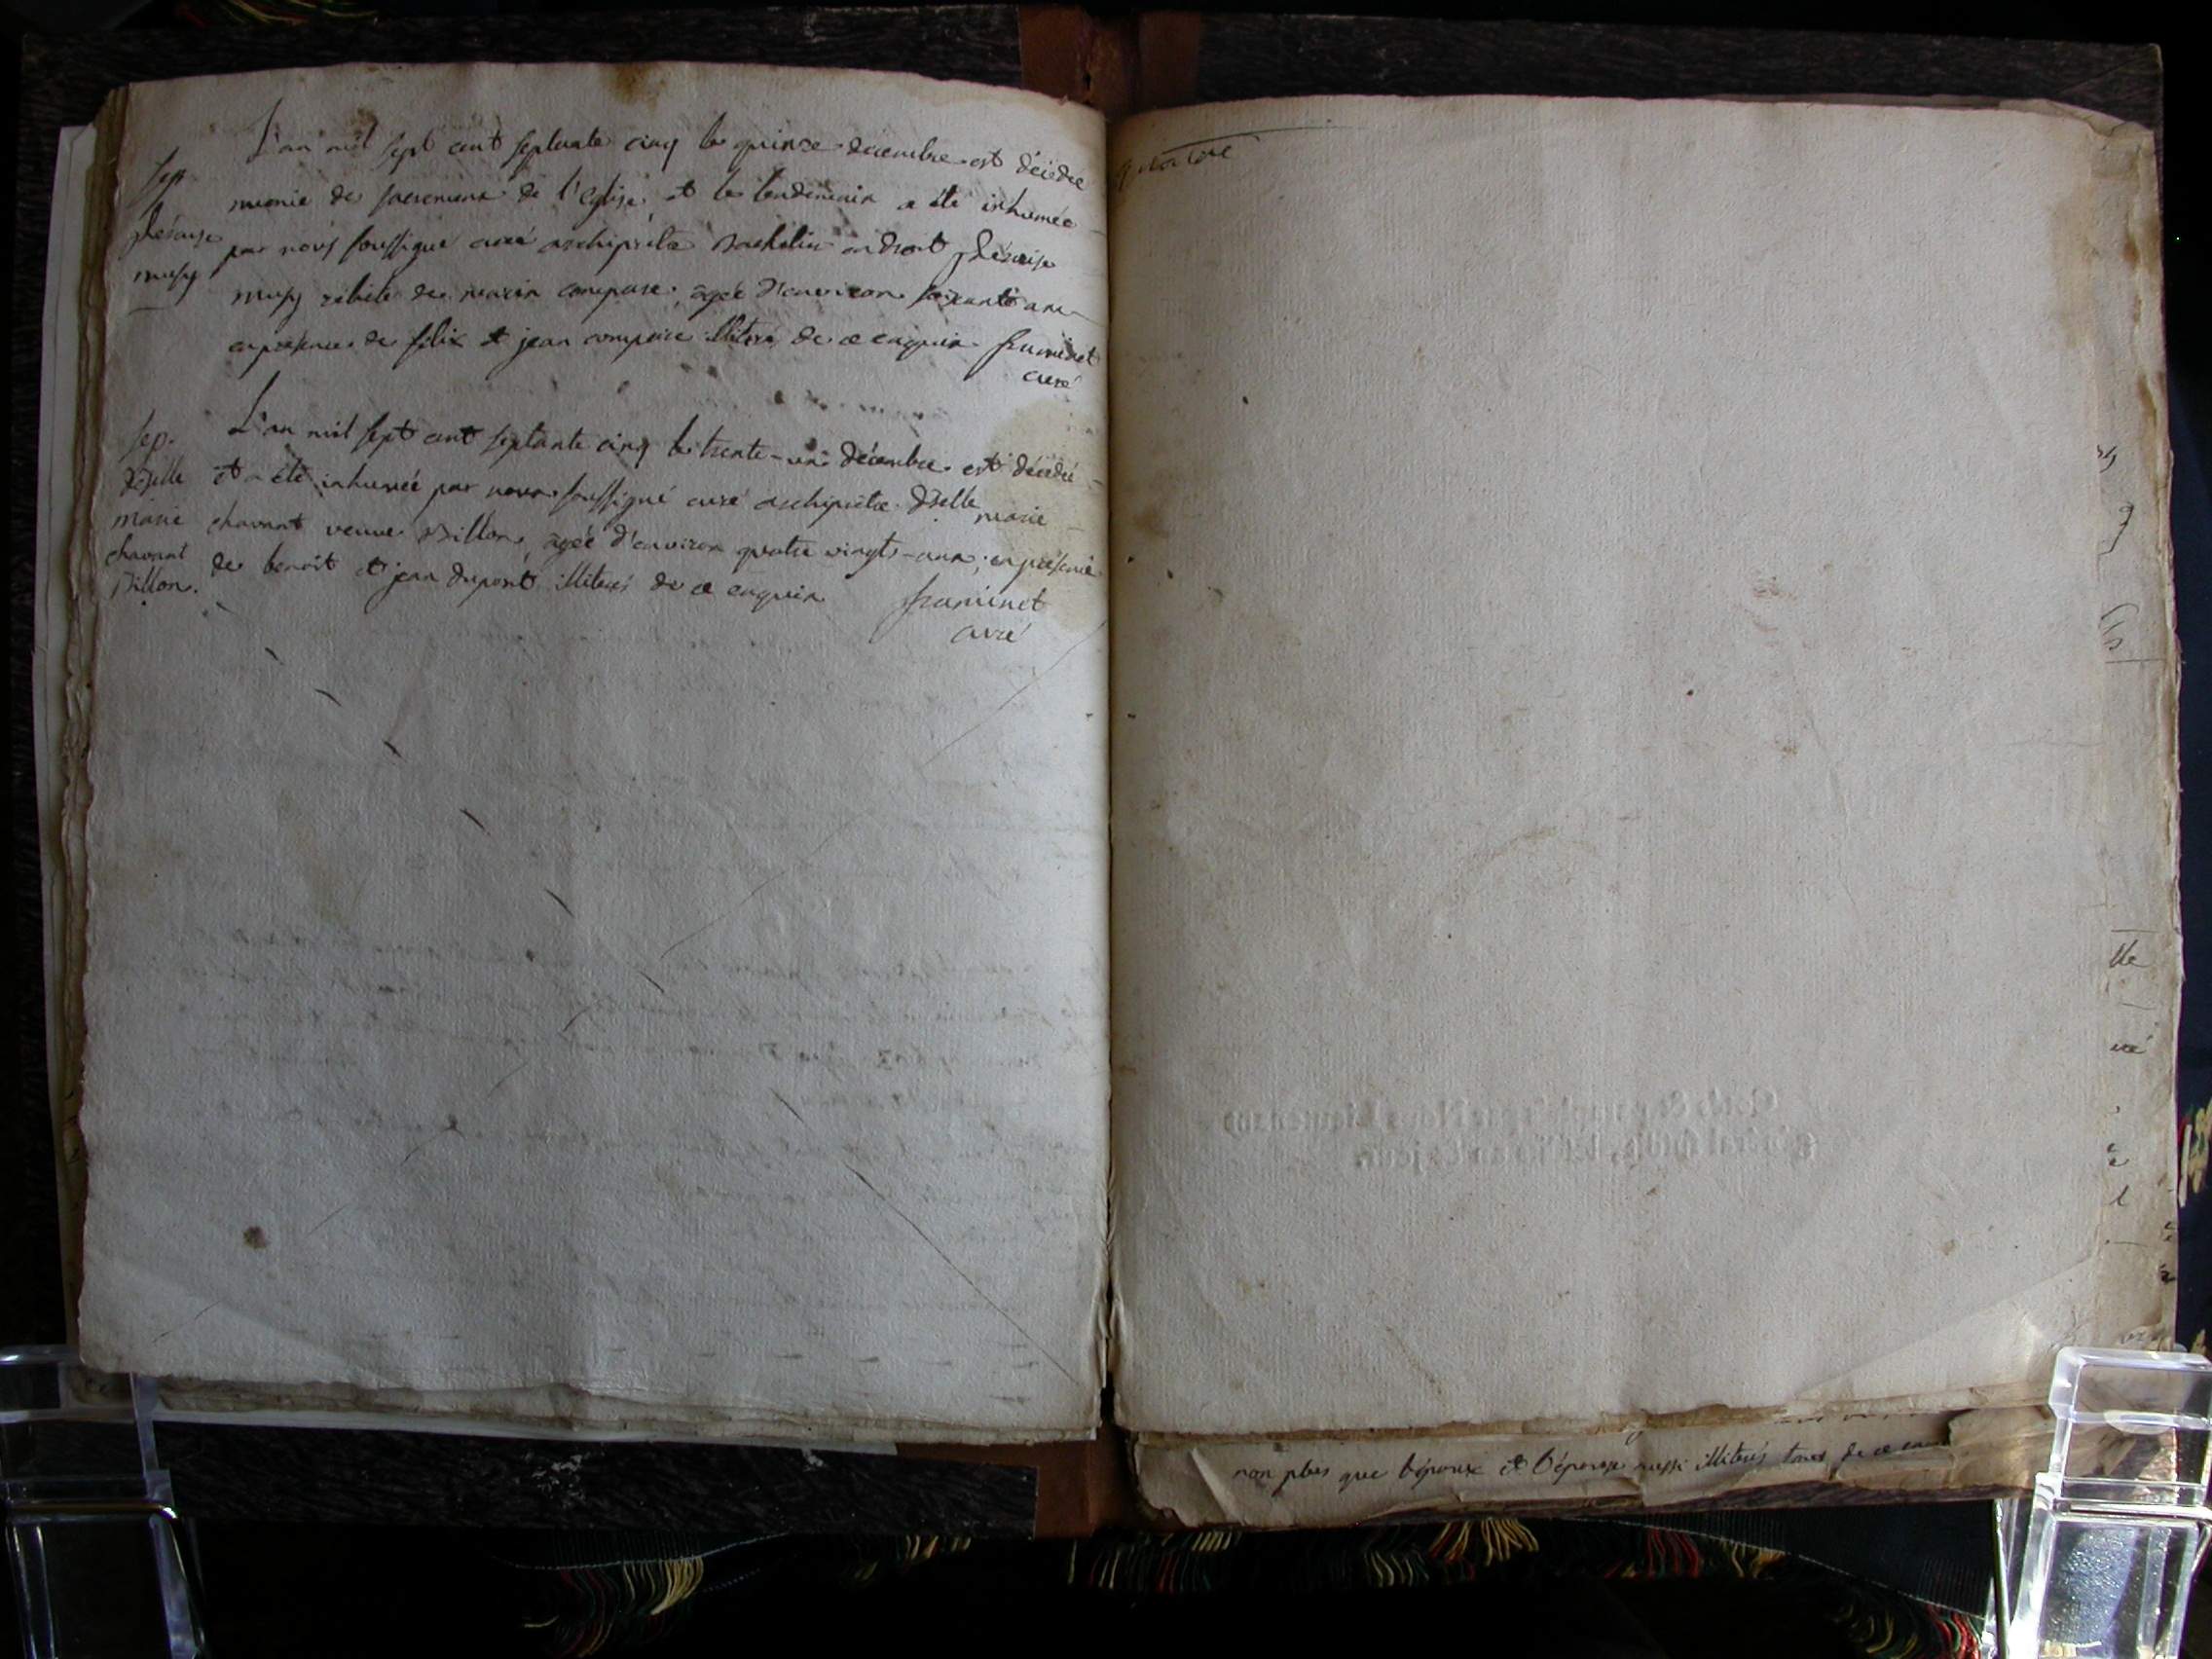 L'an mil sept cent septante cinq le quinze decembre est décédée
Sep.
munie des sacremens de l'eglise, et le lendemain a été inhumée
par nous soussigné curé archiprêtre Bachelier en droit
musy
musy de compare, agée d'environ soixante ans
en présence de felix et jean compare illiterés de ce enquis framinet
curé
Sep.
L'an mil sept cent septante cinq le trente-un décembre est décédée
Dzelle
et a été inhumée par nous soussigné curé archiprêtre Dzelle marie
marie
chavant veuve Billon, agée d'environ quatre vingts-ans, en présence
chavant
de benoit et jean dupont illiterés de ce enquis framinet
Billon.
curé
non plus que l'époux et l'épouse aussi illiterés tous de ce